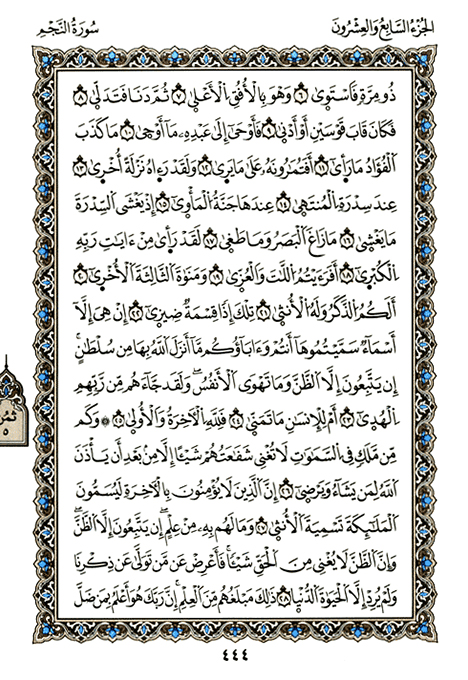 الجُزْءُ السَّابِعُ وَالعِشْرُونَ
سُورَةُ النَّجْمِ
ذُو مِرَّةٍ فَاسْتَوَىٰ ٦ وَهُوَ بِالْأُفُقِ الْأَعْلَىٰ ٧ ثُمَّ دَنَا فَتَدَلَّىٰ ٨
فَكَانَ قَابَ قَوْسَيْنِ أَوْ أَدْنَىٰ ٩ فَأَوْحَىٰ إِلَىٰ عَبْدِهِ مَا أَوْحَىٰ ١٠ مَا كَذَبَ
الْفُؤَادُ مَا رَأَىٰ ١١ أَفَتُمَٰرُونَهُ عَلَىٰ مَا يَرَىٰ ١٢ وَلَقَدْ رَءَاهُ نَزْلَةً أُخْرَىٰ ١٣
عِندَ سِدْرَةِ الْمُنتَهَىٰ ١٤ عِندَهَا جَنَّةُ الْمَأْوَىٰ ١٥ إِذْ يَغْشَى السِّدْرَةَ
مَا يَغْشَىٰ ١٦ مَا زَاغَ الْبَصَرُ وَمَا طَغَىٰ ١٧ لَقَدْ رَأَىٰ مِنْ ءَايَٰتِ رَبِّهِ
الْكُبْرَىٰ ١٨ أَفَرَءَيْتُمُ اللَّٰتَ وَالْعُزَّىٰ ١٩ وَمَنَوٰةَ الثَّالِثَةَ الْأُخْرَىٰ ٢٠
أَلَكُمُ الذَّكَرُ وَلَهُ الْأُنثَىٰ ٢١ تِلْكَ إِذًا قِسْمَةٌ ضِيزَىٰ ٢٢ إِنْ هِيَ إِلَّا
أَسْمَاءٌ سَمَّيْتُمُوهَا أَنتُمْ وَءَابَاؤُكُم مَّا أَنزَلَ اللَّهُ بِهَا مِن سُلْطَٰنٍ
إِن يَتَّبِعُونَ إِلَّا الظَّنَّ وَمَا تَهْوَى الْأَنفُسُ وَلَقَدْ جَاءَهُم مِّن رَّبِّهِمُ
الْهُدَىٰ ٢٣ أَمْ لِلْإِنسَٰنِ مَا تَمَنَّىٰ ٢٤ فَلِلَّهِ الْآخِرَةُ وَالْأُولَىٰ ٢٥ وَكَم
مِّن مَّلَكٍ فِي السَّمَٰوَٰتِ لَا تُغْنِي شَفَٰعَتُهُمْ شَيْئًا إِلَّا مِن بَعْدِ أَن يَأْذَنَ
اللَّهُ لِمَن يَشَاءُ وَيَرْضَىٰ ٢٦ إِنَّ الَّذِينَ لَا يُؤْمِنُونَ بِالْآخِرَةِ لَيُسَمُّونَ
الْمَلَٰئِكَةَ تَسْمِيَةَ الْأُنثَىٰ ٢٧ وَمَا لَهُم بِهِ مِنْ عِلْمٍ إِن يَتَّبِعُونَ إِلَّا الظَّنَّ
وَإِنَّ الظَّنَّ لَا يُغْنِي مِنَ الْحَقِّ شَيْئًا فَأَعْرِضْ عَن مَّن تَوَلَّىٰ عَن ذِكْرِنَا
وَلَمْ يُرِدْ إِلَّا الْحَيَوٰةَ الدُّنْيَا ٢٨ ذَٰلِكَ مَبْلَغُهُم مِّنَ الْعِلْمِ إِنَّ رَبَّكَ هُوَ أَعْلَمُ بِمَن ضَلَّ
ثمن
٥
٤٤٤